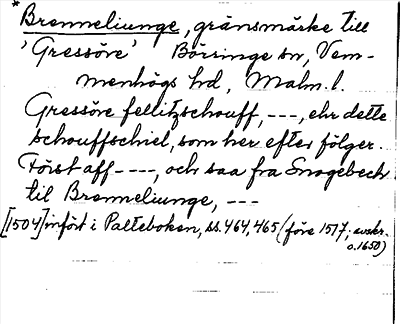 * Brenneliunge, gränsmärke till
'Gressöre' Börringe sn, Vem-
menhögs hd, Malm. l.
Gressöre fellitzschouff, ---, ehr dette
schouffschiel, som her efter fölger.
Först aff ----, och saa fra Snogebech
til Brenneliunge, ---
[1504] infört i Palteboken, ss. 464, 465 (före 1517; avskr.
o. 1650)